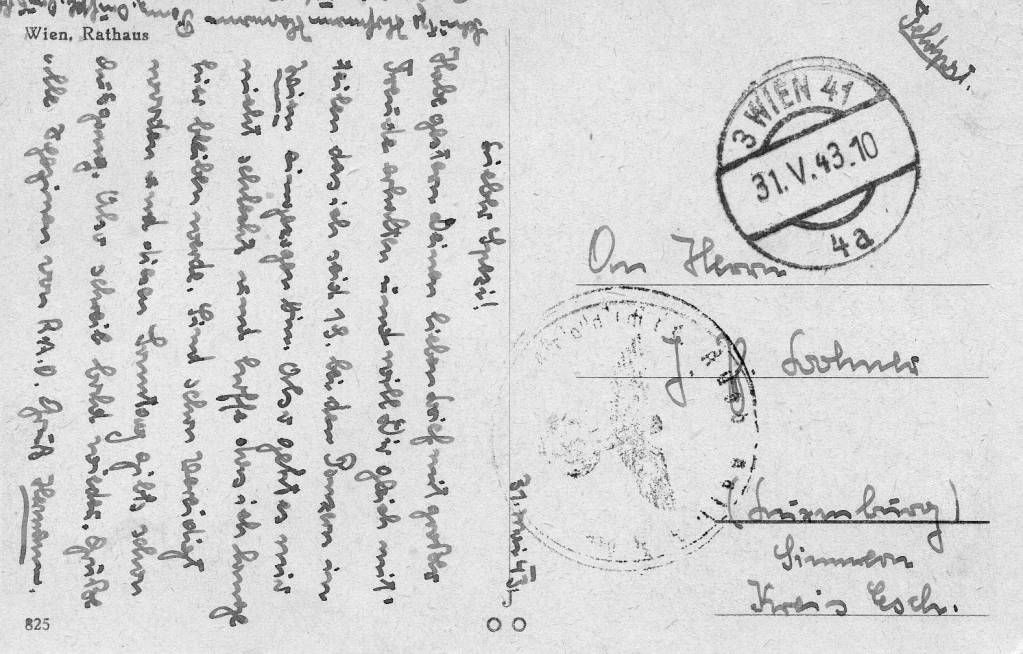 Wien, Rathaus
Feldpost.
3 WIEN 41
31.V.43.10
4a
Hermann
31. Mai 43.
Lieber
Habe gestern Deinen lieben Brief mit großer
Freude erhalten und will Dir gleich mit-
teilen das ich seid 18. bei den Panzern in
Wien eingezogen bin. Also geht es mir
nicht schlecht und hoffe das ich lange
hier bleiben werde. Sind schon vereidigt
worden und diesen Sonntag gibts schon
Ausgang. Also schreib bald wieder. Grüße
alle von R.A.D. Gruß Hermann.
An Herrn
J. P.
(Luxemburg)
Kreis Esch.
825